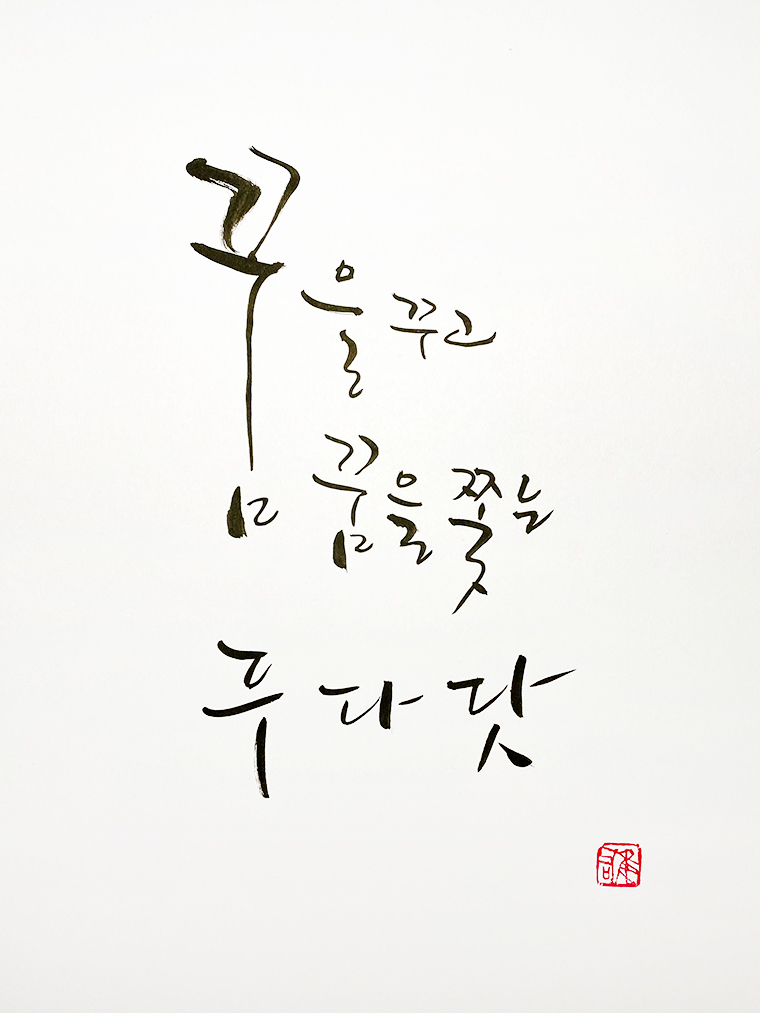 꿈을 꾸고
꿈을 쫓는
푸다닷